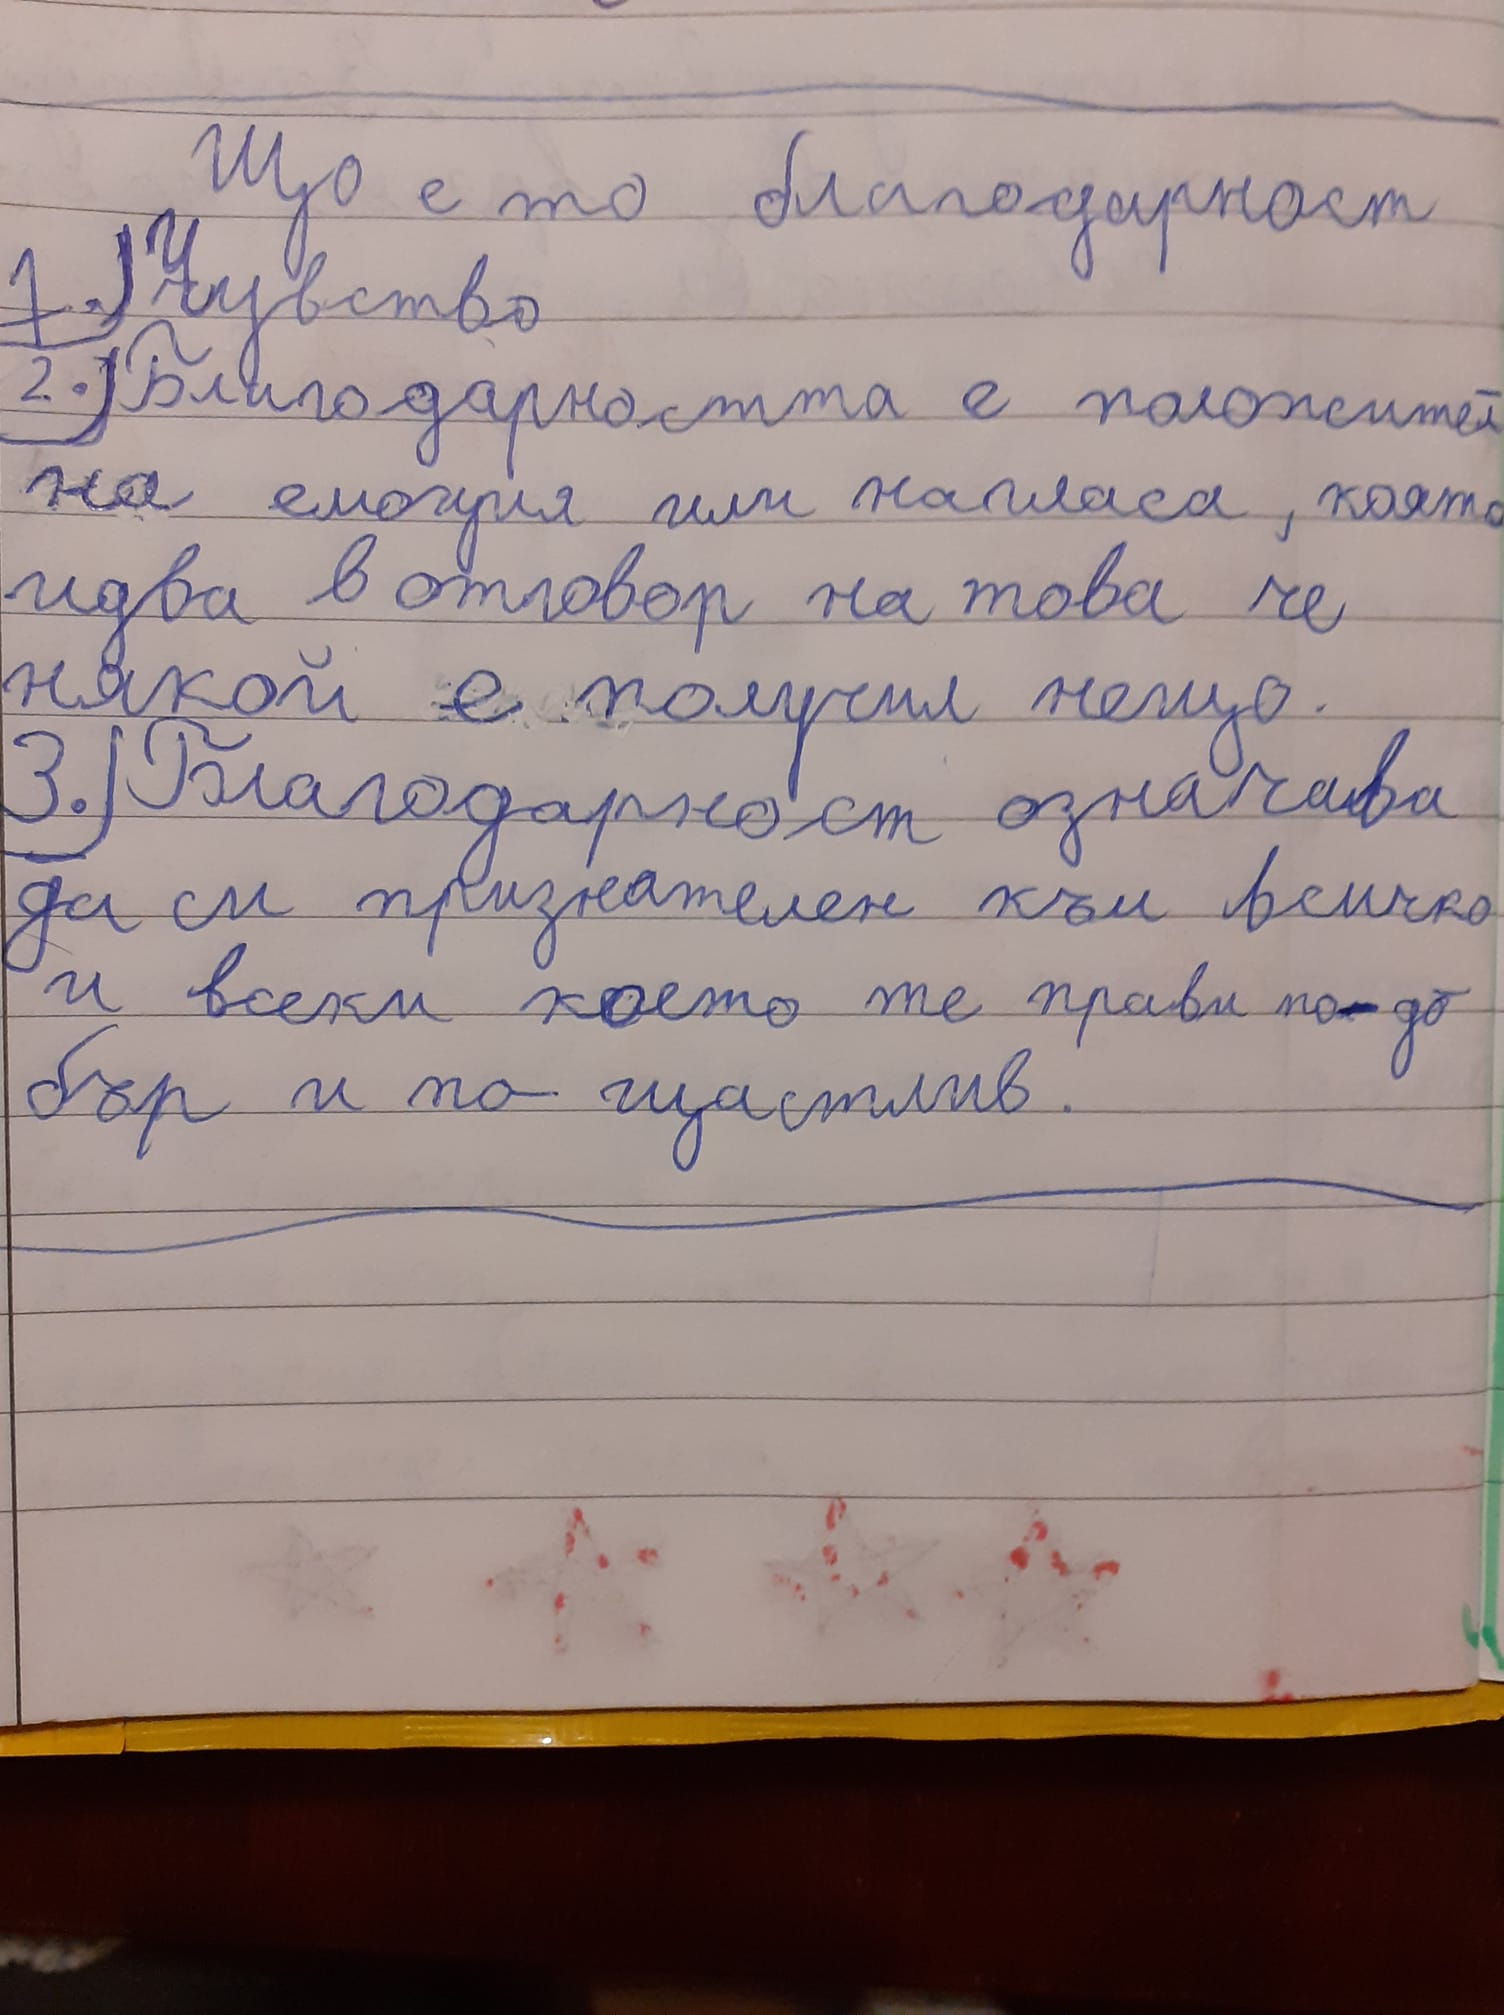 Що е то благодарност
1.) Чувство
2.) Благодарността е положител
на емоция или нагласа, която
идва в отговор на това че
някой е получил нещо.
3.) Благодарност означава
да си признателен към всичко
и всеки което те прави по-до
бър и по-щастлив.